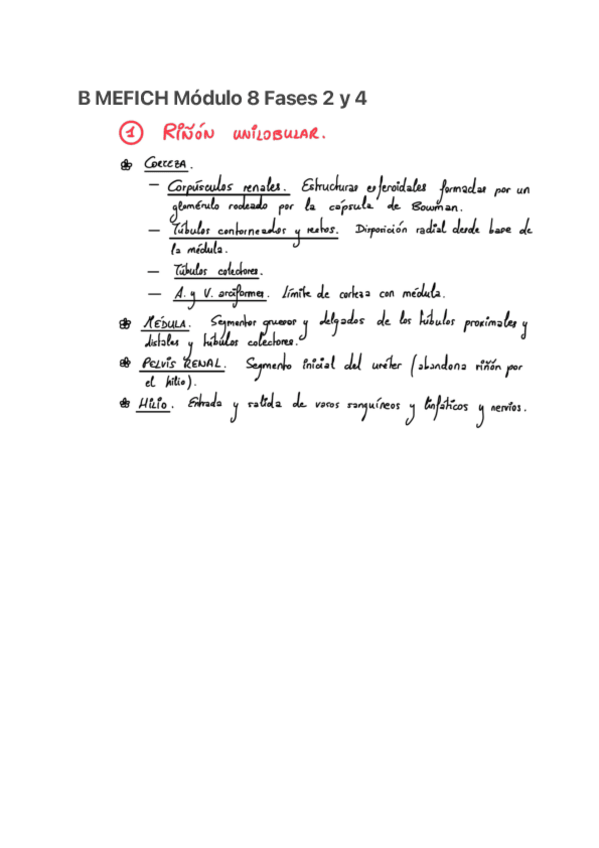 B MEFICH Módulo 8 Fases 2 y 4
1 RIÑÓN UNILOBULAR.
CORTEZA.
— Corpúsculos renales. Estructuras esferoidales formadas por un
glomérulo rodeado por la cápsula de Bowman.
— Túbulos contorneados y rectos. Disposición radial desde base de
la médula.
— Túbulos colectores.
— A. y V. arciformes. Límite de corteza con médula.
MÉDULA. Segmentos gruesos y delgados de los túbulos proximales y
distales y túbulos colectores.
PELVIS RENAL. Segmento inicial del uréter (abandona riñón por
el hilio).
HILIO. Entrada y salida de vasos sanguíneos y linfáticos y nervios.